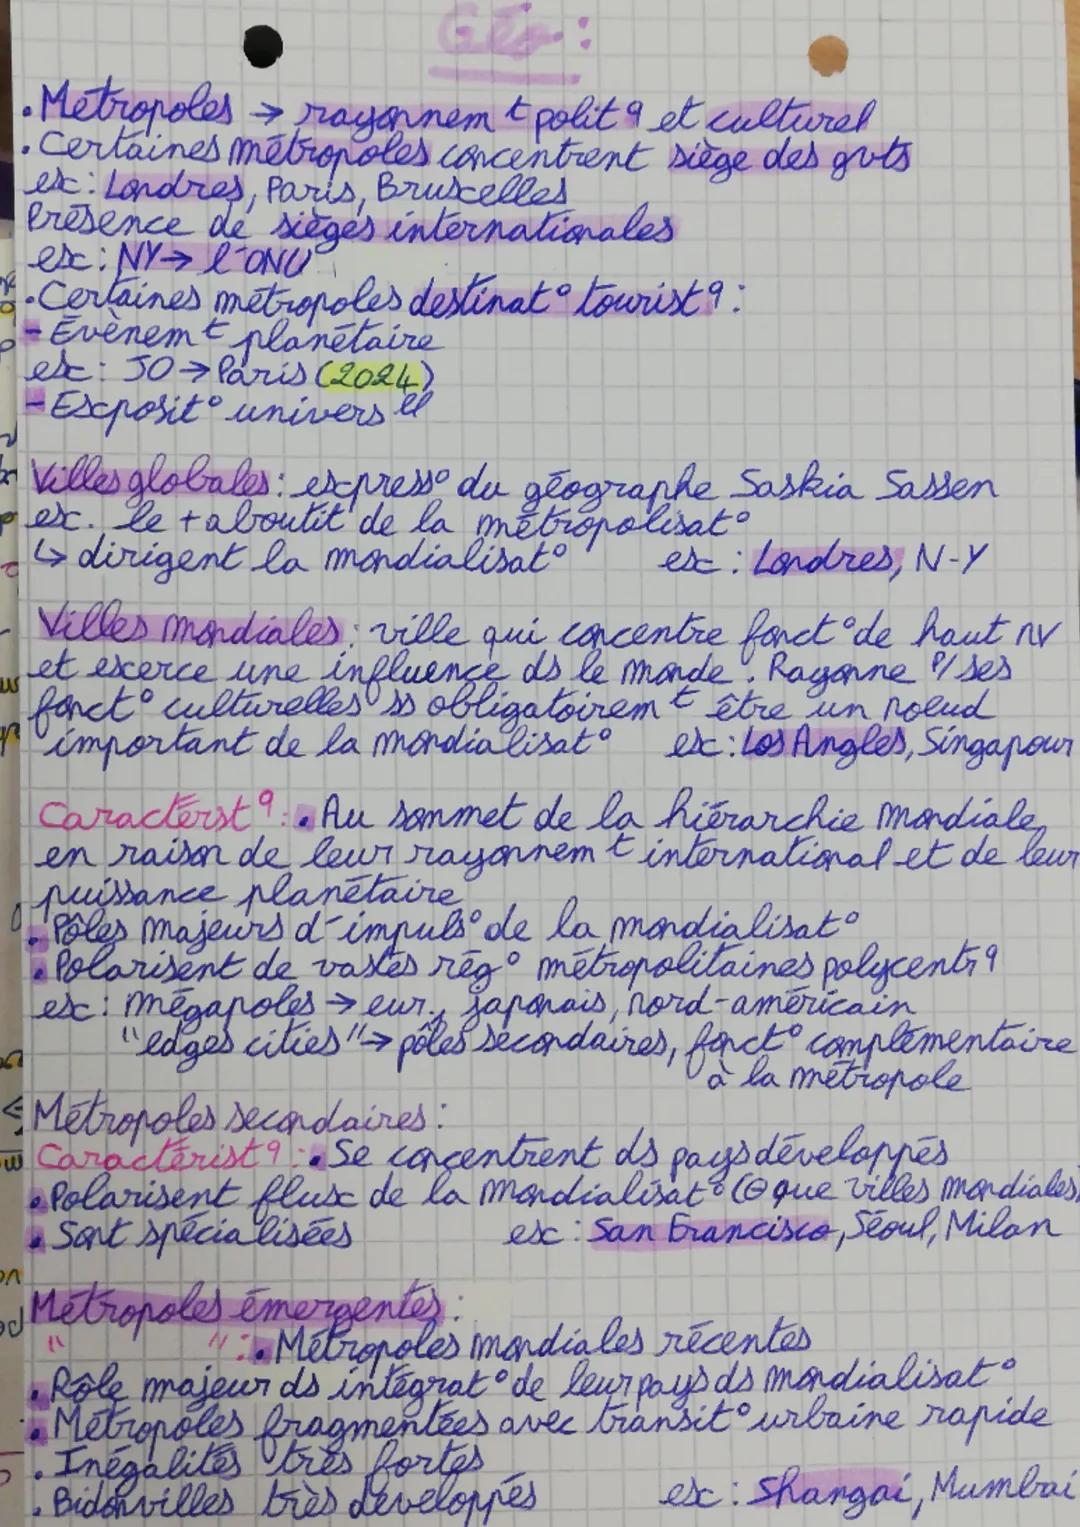 Géo :
• Métropoles → rayonnem t polit q et culturel
• Certaines métropoles concentrent siège des gvts
ex : Londres, Paris, Bruxelles
Présence de sièges internationales
ex : NY → l'ONU
• Certaines métropoles destinat° tourist q :
- Évènem t planétaire
ex : JO → Paris (2024)
- Exposit° univers elle
Villes globales : express° du géographe Saskia Sassen
ex. le + aboutit de la métropolisat°
↳ dirigent la mondialisat° ex : Londres, N-Y
Villes mondiales : ville qui concentre fonct° de haut nv
et exerce une influence ds le monde. Rayonne p/ ses
fonct° culturelles ss obligatoirem t être un noeud
important de la mondialisat° ex : Los Angles, Singapour
Caractérst q : • Au sommet de la hiérarchie mondiale
en raison de leur rayonnem t international et de leur
puissance planétaire
• Pôles majeurs d'impuls° de la mondialisat°
• Polarisent de vastes rég° métropolitaines polycentr q
ex : mégapoles → eur., japonais, nord-américain
"edges cities" → pôles secondaires, fonct° complémentaire
à la métropole
Métropoles secondaires :
Caractérist q : • Se concentrent ds pays développés
• Polarisent flux de la mondialisat° (⊖ que villes mondiales)
• Sont spécialisées ex : San Francisco, Séoul, Milan
Métropoles émergentes :
" " : • Métropoles mondiales récentes
• Rôle majeur ds intégrat° de leur pays ds mondialisat°
• Métropoles fragmentées avec transit° urbaine rapide
• Inégalités très fortes
• Bidonvilles très développés ex : Shangai, Mumbai